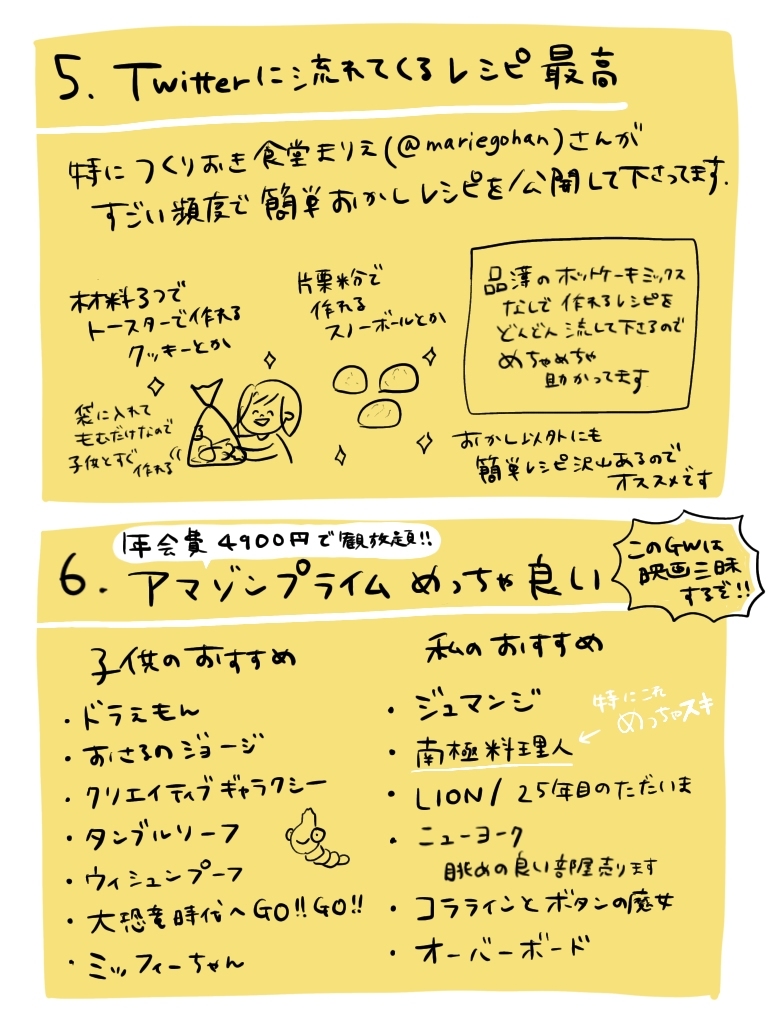 5. Twitterに流れてくるレシピ 最高
特に つくりおき食堂まりえ(@mariegohan)さんが
すごい頻度で 簡単おかしレシピを公開して下さってます.
材料3つで
トースターで作れる
クッキーとか
袋に入れて
もむだけなので
子供とすぐ
作れる
片栗粉で
作れる
スノーボールとか
品薄のホットケーキミックス
なしで 作れるレシピを
どんどん流して下さるので
めちゃめちゃ
助かってます
おかし以外にも
簡単レシピ沢山あるので
オススメです
1年会費 4900円で観放題!!
6. アマゾンプライム めっちゃ良い
このGWは
映画三昧
するぞ!!
子供のおすすめ
・ドラえもん
・おさるのジョージ
・クリエイティブギャラクシー
・タンブルリーフ
・ウィシュンプーフ
・大恐竜時代へGO!!GO!!
・ミッフィーちゃん
私のおすすめ
・ジュマンジ
・南極料理人
特にこれ
めっちゃスキ
・LION/25年目のただいま
・ニューヨーク
眺めの良い部屋売ります
・コララインとボタンの魔女
・オーバーボード